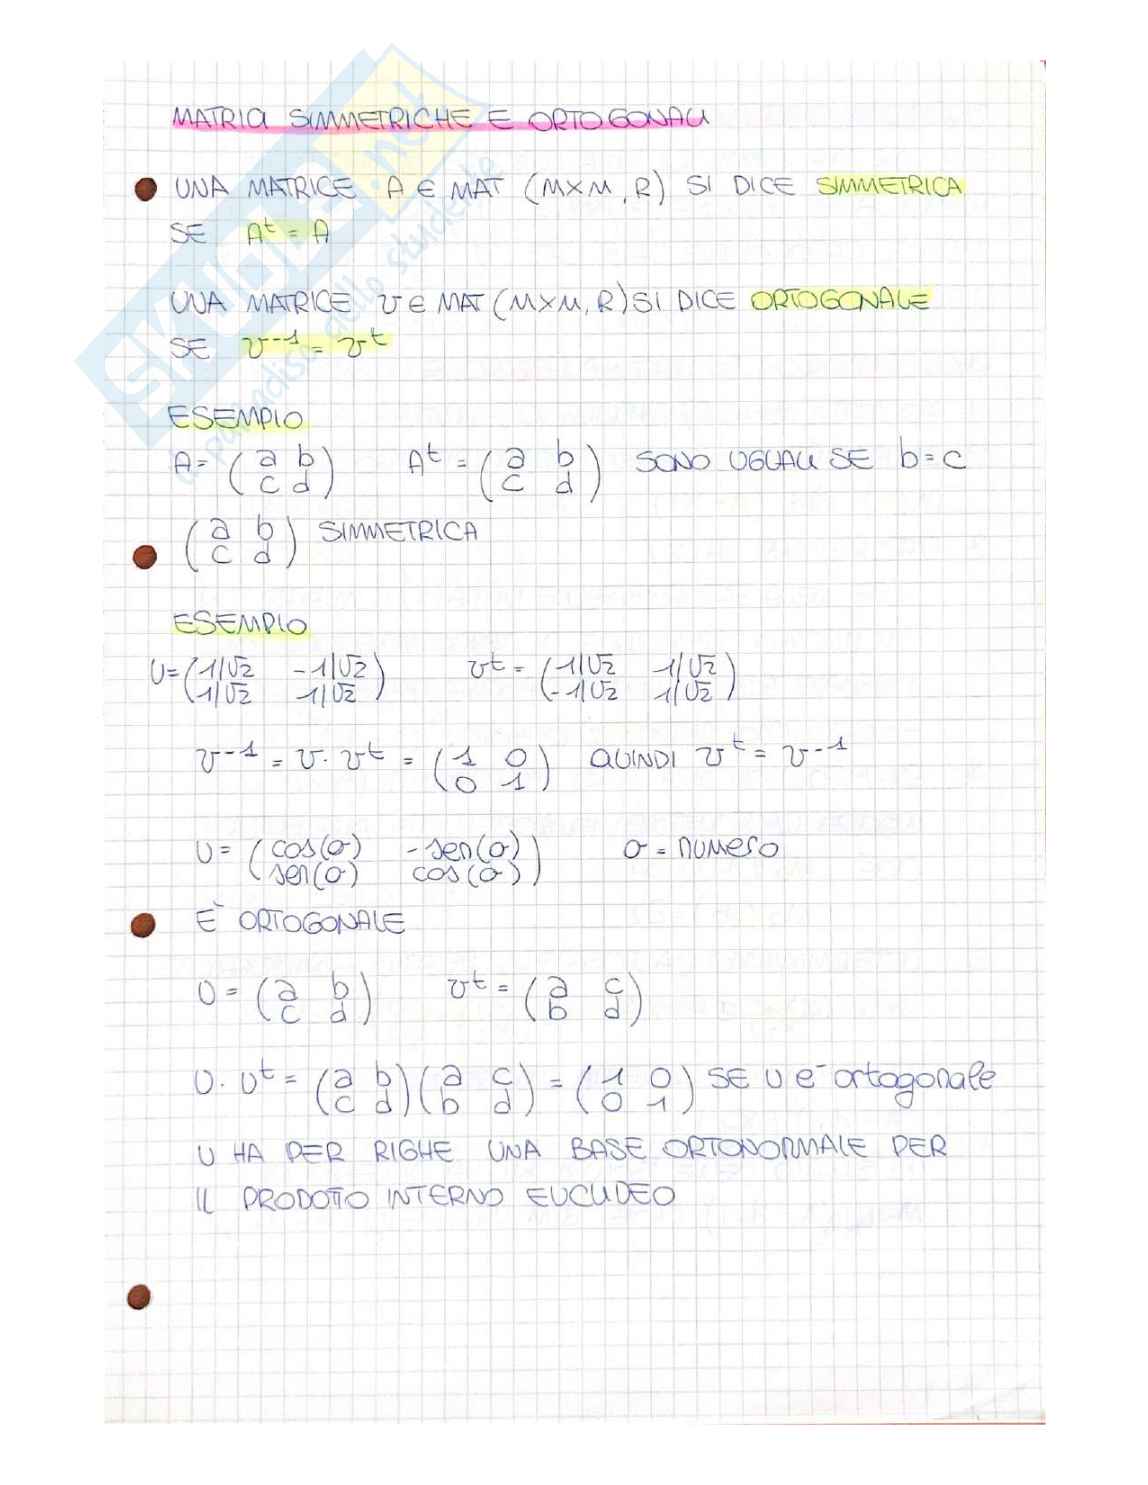 MATRICI SIMMETRICHE E ORTOGONALI
UNA MATRICE A ∈ MAT (M×M, R) SI DICE SIMMETRICA
SE Aᵗ = A
UNA MATRICE U ∈ MAT (M×M, R) SI DICE ORTOGONALE
SE U⁻¹ = Uᵗ
ESEMPIO
A= (a b / c d) Aᵗ = (a b / c d) SONO UGUALI SE b = c
(a b / c d) SIMMETRICA
ESEMPIO
U= (1/√2 -1/√2 / 1/√2 1/√2) Uᵗ = (1/√2 1/√2 / -1/√2 1/√2)
U⁻¹ = U · Uᵗ = (1 0 / 0 1) QUINDI Uᵗ = U⁻¹
U= (cos(σ) -sen(σ) / sen(σ) cos(σ)) σ = numero
E' ORTOGONALE
U = (a b / c d) Uᵗ = (a c / b d)
U · Uᵗ = (a b / c d)(a c / b d) = (1 0 / 0 1) SE U e' ortogonale
U HA PER RIGHE UNA BASE ORTONORMALE PER
IL PRODOTTO INTERNO EUCLIDEO
SKUOLA.net
il paradiso dello studente